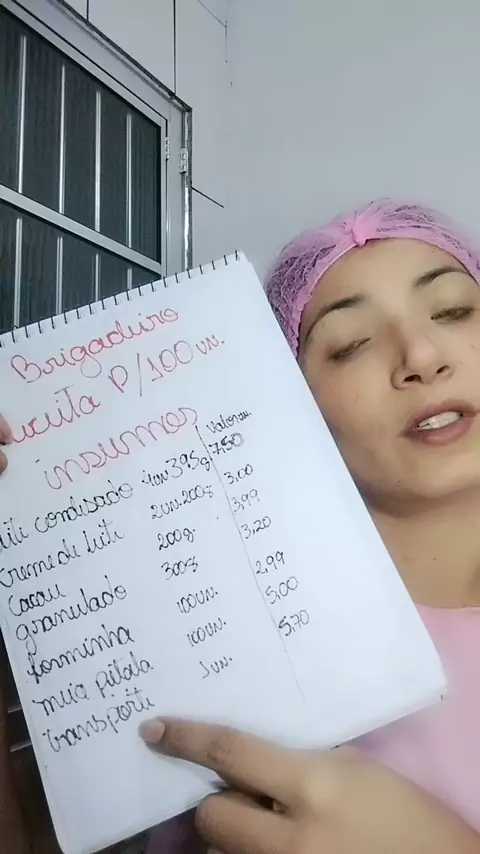 Brigadeiro
P/100 un.
insumos Valor un.
condisado 4un 395g 7,50
Creme di leiti 2un. 200g 3,00
Cacau 200g. 3,99
granulado 300g 3,20
forminha 100un. 2,99
meia pétala 100un. 5,00
transporti 1un. 5,70